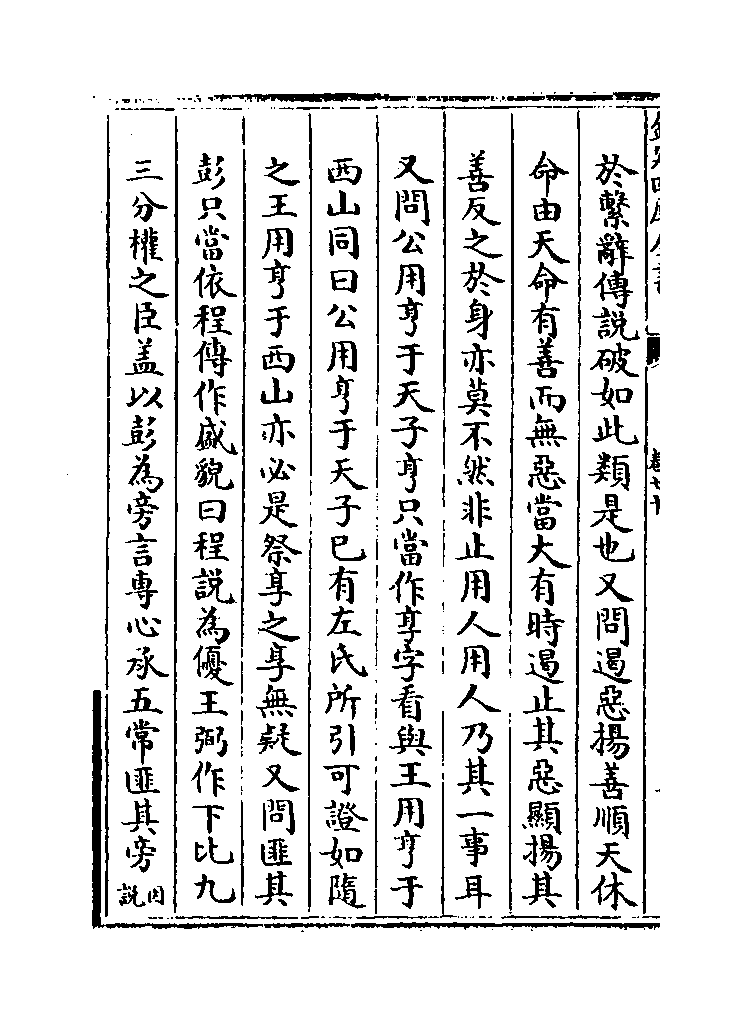 於繫辭傳說破如此類是也又問遏惡揚善順天休
命由天命有善而無惡當大有時遏止其惡顯揚其
善反之於身亦莫不然非止用人用人乃其一事耳
又問公用亨于天子亨只當作享字看與王用亨于
西山同曰公用亨于天子已有左氏所引可證如隨
之王用亨于西山亦必是祭享之享無疑又問匪其
彭只當依程傳作盛貌曰程說為優王弼作下比九
三分權之臣盖以彭為旁言專心承五常匪其旁因
說